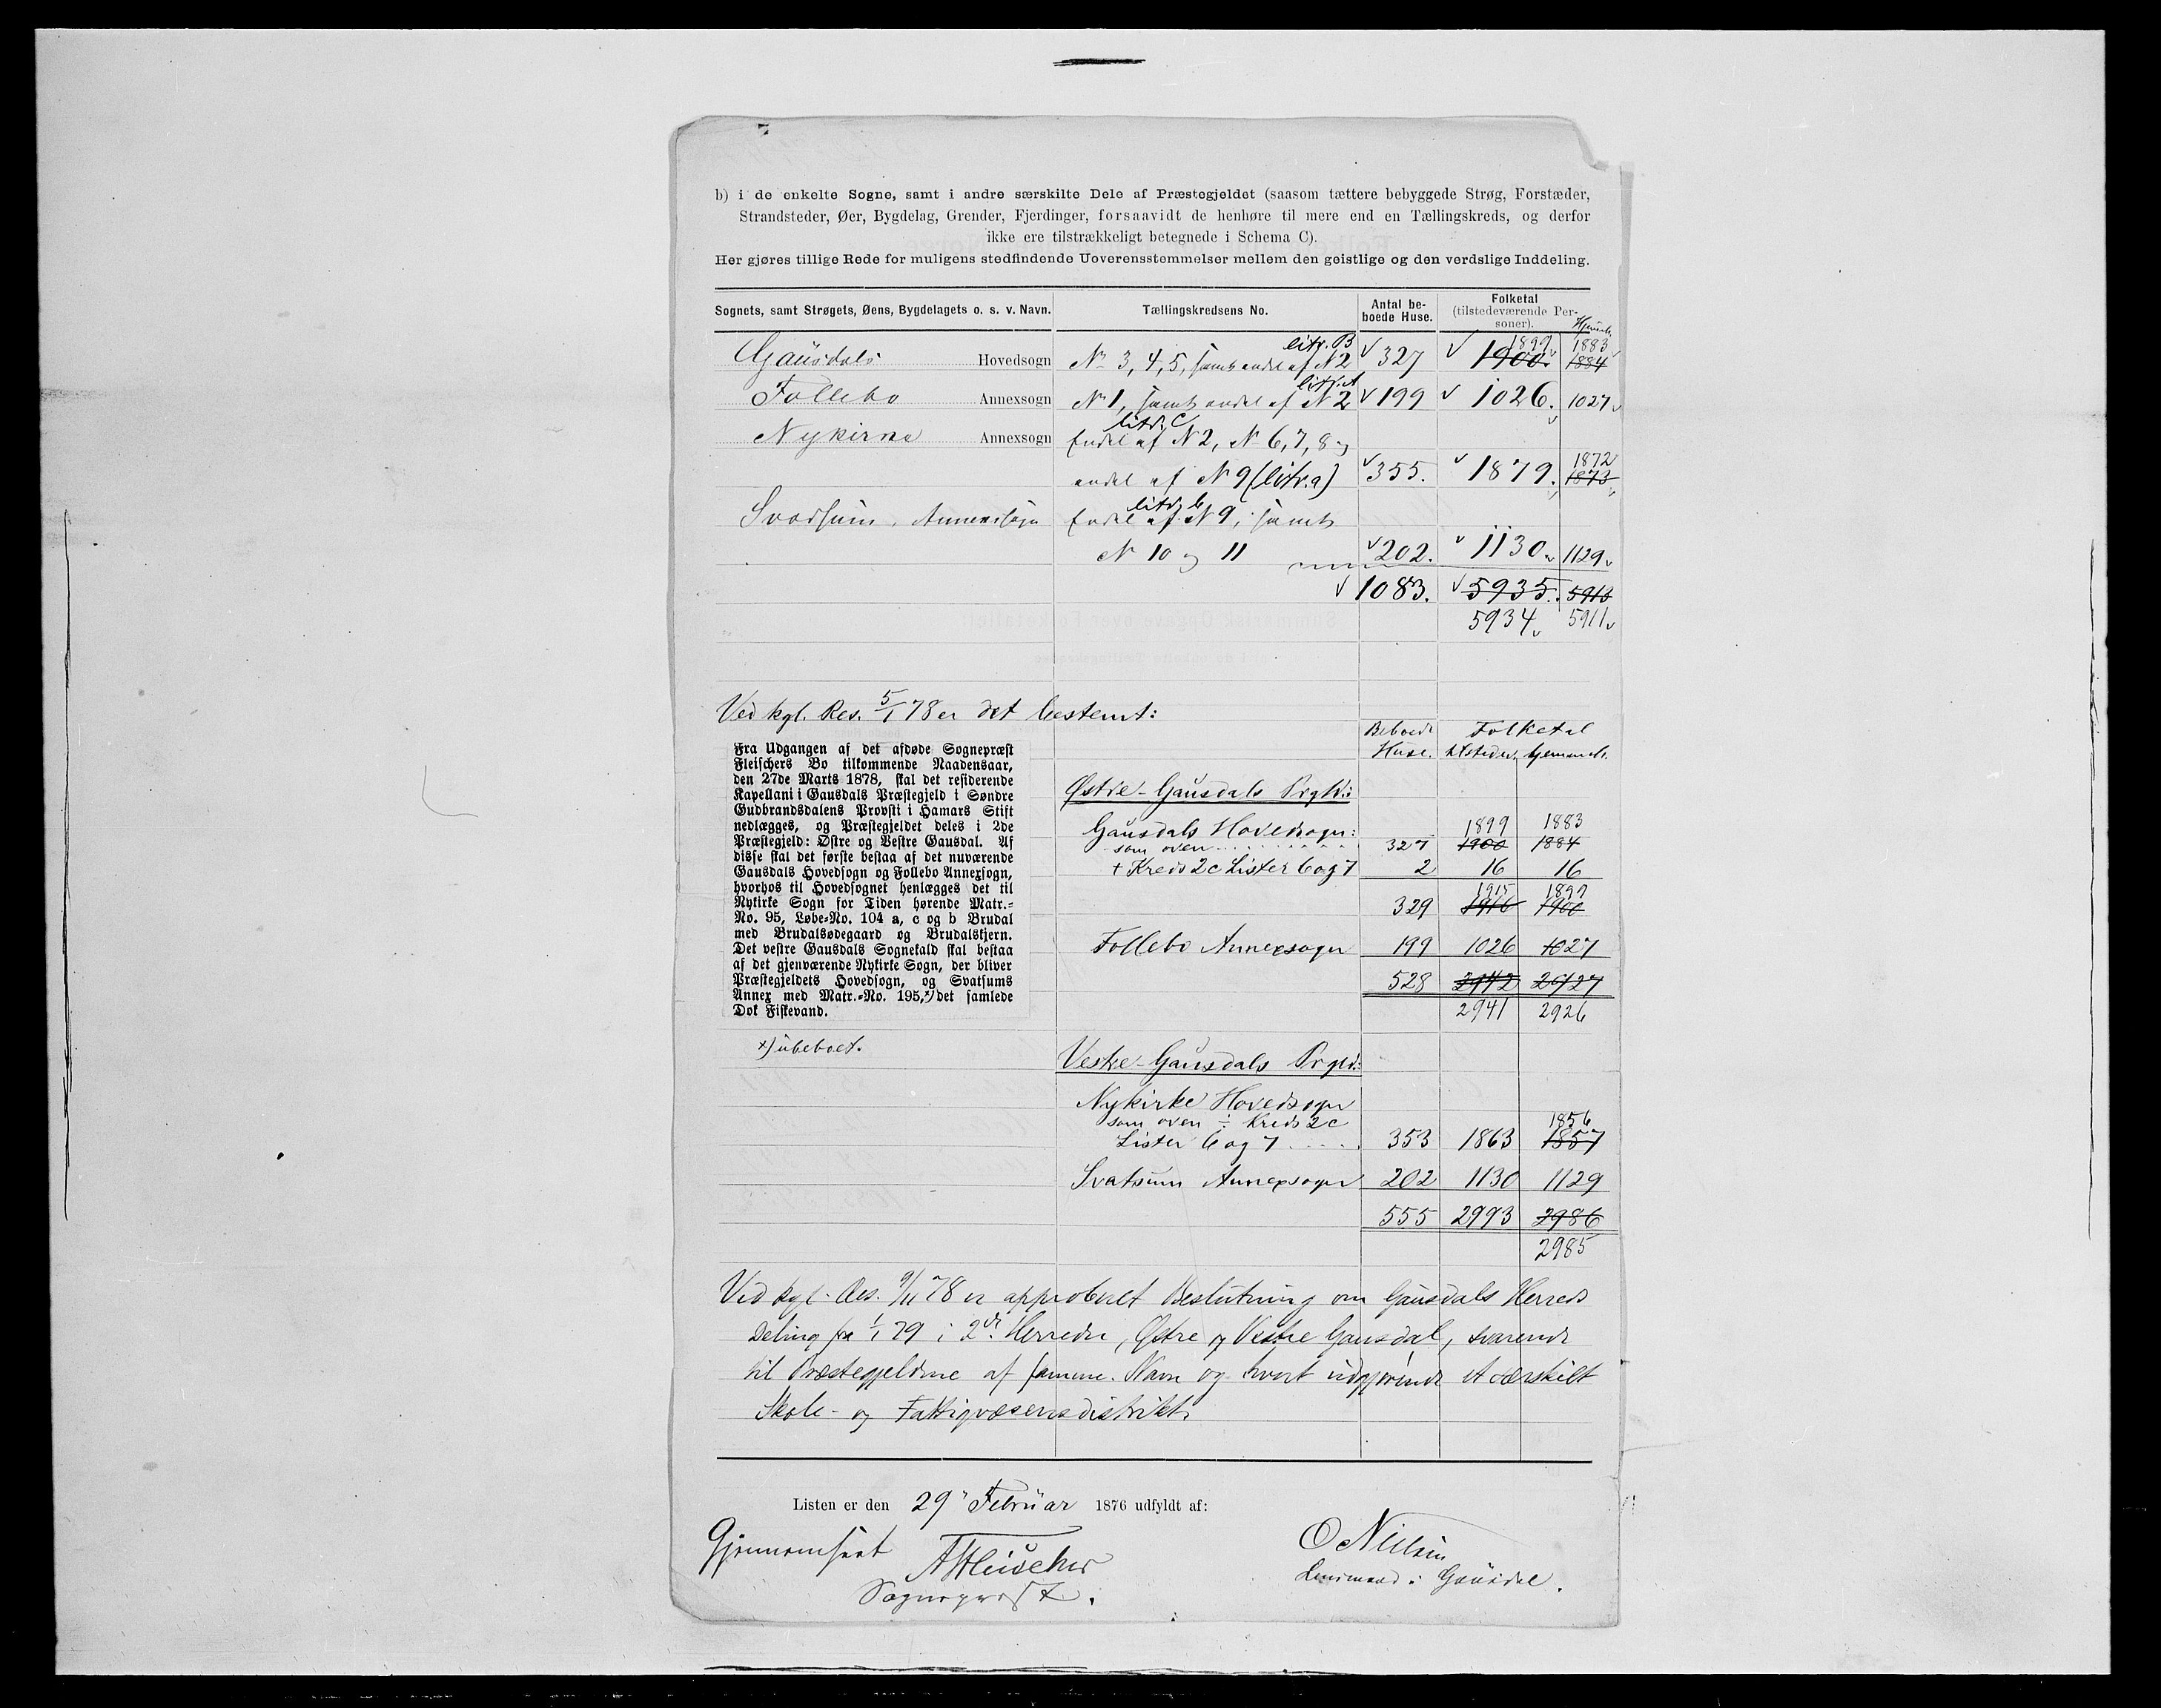 b) i de enkelte Sogne, samt i andre særskilte Dele af Præstegjeldet (saasom tættere bebyggede Strøg, Forstæder,
Strandsteder, Øer, Bygdelag, Grender, Fjerdinger, forsaavidt de henhøre til mere end en Tællingskreds, og derfor
ikke ere tilstrækkeligt betegnede i Schema C).
Her gjøres tillige Rede for muligens stedfindende Uoverensstemmelser mellem den geistlige og den verdslige Inddeling.
Sognets, samt Strøgets, Øens, Bygdelagets o. s. v. Navn. Tællingskredsens No. Antal beboede Huse. Folketal (tilstedeværende Personer).
litr. B 1899 1883
Gausdals Hovedsogn No 3, 4, 5, samt andel af N 2 327 1900 1884
litr. A
Follebo Annexsogn No 1, samt andel af N 2 199 1026. 1027
litr. C
Nykirke Annexsogn Endel af N 2, N 6, 7, 8 og
1872
andel af N 9 (litr. a) 355. 1879. 1873
litr. b
Svatsum, Annexsogn Endel af N 9, samt
N 10 og 11 202. 1130 1129
1083. 5935. 5913
5934 5911
Ved kgl. Res. 5/1 78 er det bestemt:
Beboede Folketal
Huse. tilstedev. hjemmeh.
Fra Udgangen af det afdøde Sognepræst
Fleischers Bo tilkommende Naadensaar,
den 27de Marts 1878, skal det residerende
Kapellani i Gausdals Præstegjeld i Søndre
Gudbrandsdalens Provsti i Hamars Stift
nedlægges, og Præstegjeldet deles i 2de
Præstegjeld: Østre og Vestre Gausdal. Af
disse skal det første bestaa af det nuværende
Gausdals Hovedsogn og Follebo Annexsogn,
hvorhos til Hovedsognet henlægges det til
Nykirke Sogn for Tiden hørende Matr.-
No. 95, Løbe-No. 104 a, c og b Brudal
med Brudalsødegaard og Brudalskjern.
Det vestre Gausdals Sognekald skal bestaa
af det gjenværende Nykirke Sogn, der bliver
Præstegjeldets Hovedsogn, og Svatsums
Annex med Matr.-No. 195,x) det samlede
Dok Fiskevand.
x) ubeboet.
Østre-Gausdals Prgld:
Gausdals Hovedsogn: 1899 1883
som oven 327 1900 1884
+ Kreds 2c Lister 6 og 7 2 16 16
1915 1899
329 1916 1900
Follebo Annexsogn 199 1026 1027
528 2942 2927
2941 2926
Vestre-Gausdals Prgld:
Nykirke Hovedsogn
som oven ÷ Kreds 2c 1856
Lister 6 og 7 353 1863 1857
Svatsum Annexsogn 202 1130 1129
555 2993 2986
2985
Ved kgl. Res. 9/11 78 er approberet Beslutning om Gausdals Herreds
Deling fra 1/1 79 i 2de Herreder, Østre og Vestre Gausdal, svarende
til Præstegjeldene af samme Navn og hvert udgjørende et særskilt
Skole- og Fattigvæsensdistrikt.
Listen er den 29 Februar 1876 udfyldt af:
Gjennemseet O Nielsen
Fleischer Lensmand i Gausdal.
Sognepræst.